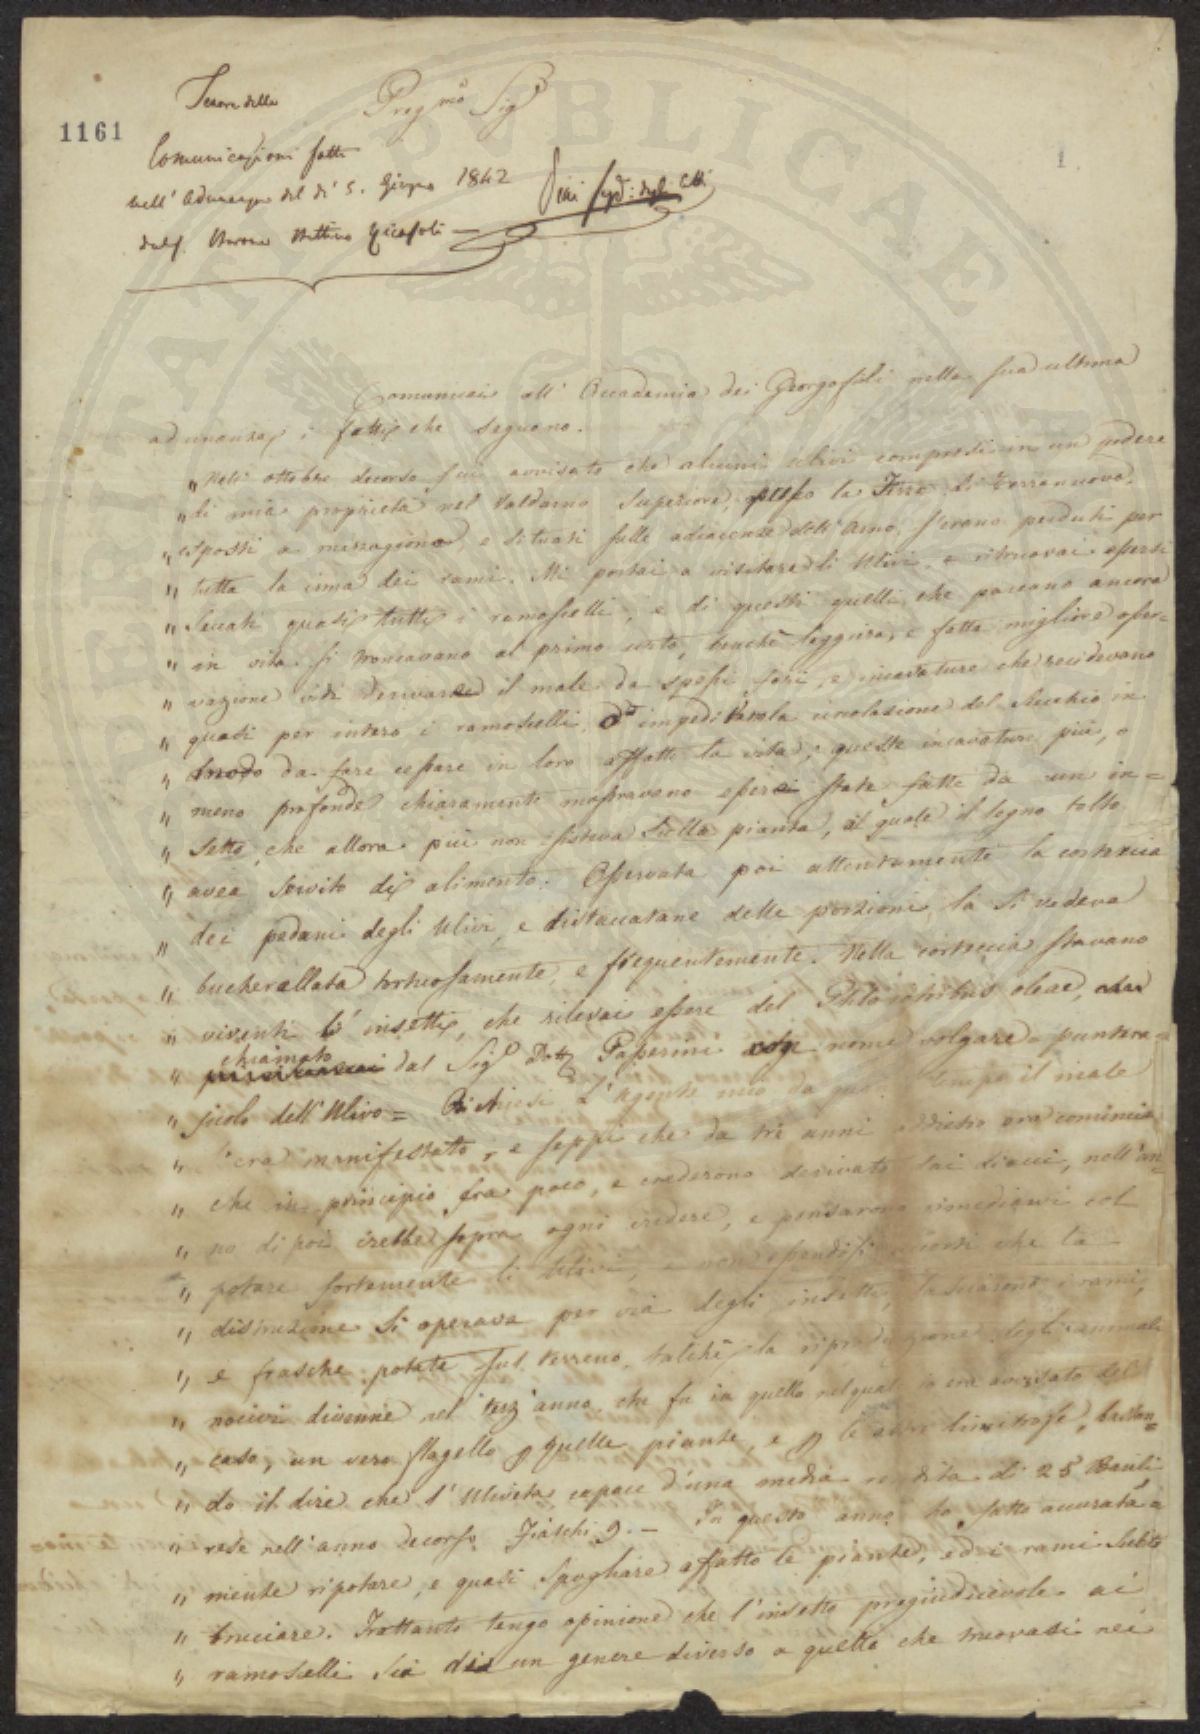 Tenore della
Preg.mo Sig.e
1161
1.
Comunicazioni fatte
nell' Adunanza del dì 5. Giugno 1842
dal S. Barone Bettino Ricasoli —
Comunicai all' Accademia dei Georgofili nella sua ultima
adunanza i fatti che seguono.
„ Nell' ottobre decorso fui avvisato che alcuni ulivi compresi in un podere
„ di mia proprietà nel Valdarno Superiore, presso la Terra di Terranuova,
„ esposti a mezzogiorno, e situati sulle adiacenze dell' Arno, s'erano perduti per
„ tutta la cima dei rami. Mi portai a visitare li Ulivi, e ritrovai essersi
„ seccati quasi tutti i ramoscelli, e di questi quelli che parevano ancora
„ in vita si troncavano al primo urto, benchè leggiero, e fatta migliore osser=
„ vazione vidi derivare il male da spessi fori, e incavature che recidevano
„ quasi per intero i ramoscelli, ed impedivano la circolazione del succhio in
„ modo da fare cessare in loro affatto la vita; queste incavature più, o
„ meno profonde chiaramente mostravano essere state fatte da un in=
„ setto, che allora più non stava sulla pianta, al quale il legno tolto
„ avea servito di alimento. Osservata poi attentamente la corteccia
„ dei pedani degli Ulivi, e distaccatane delle porzioni, la si vedeva
„ bucherellata tortuosamente, e frequentemente. Nella corteccia stavano
„ viventi li insetti, che rilevai essere del Phloiotribus oleae,
„ chiamato dal Sig.e Dott. Passerini col nome volgare = punteru=
„ olo dell' Ulivo = Richiesi L'Agente mio da quanto tempo il male
„ s'era manifestato, e seppi che da tre anni addietro era cominciato
„ che in principio fu poco, e crederono derivato dai diacci, nell'an=
„ no di poi crebbe sopra ogni credere, e pensarono rimediarvi col
„ potare fortemente li Ulivi, e non essendosi accorti che la
„ distruzione si operava per via degli insetti, lasciarono i rami,
„ e frasche potate sul terreno, talchè la riproduzione degli animali
„ nocivi divenne nel terz' anno, che fu in quello nel quale io era avvisato del
„ caso, un vero flagello p quelle piante, e p le altre limitrofe, bastan=
„ do il dire che l' Uliveta capace d'una media rendita di 25 Barili
„ rese nell' anno decorso Fiaschi 9. — In questo anno ho fatto accurata=
„ mente ripotare, e quasi spogliare affatto le piante, ed i rami subito
„ bruciare. Frattanto tengo opinione che l'insetto pregiudicevole ai
„ ramoscelli sia di un genere diverso a quello che trovasi nei